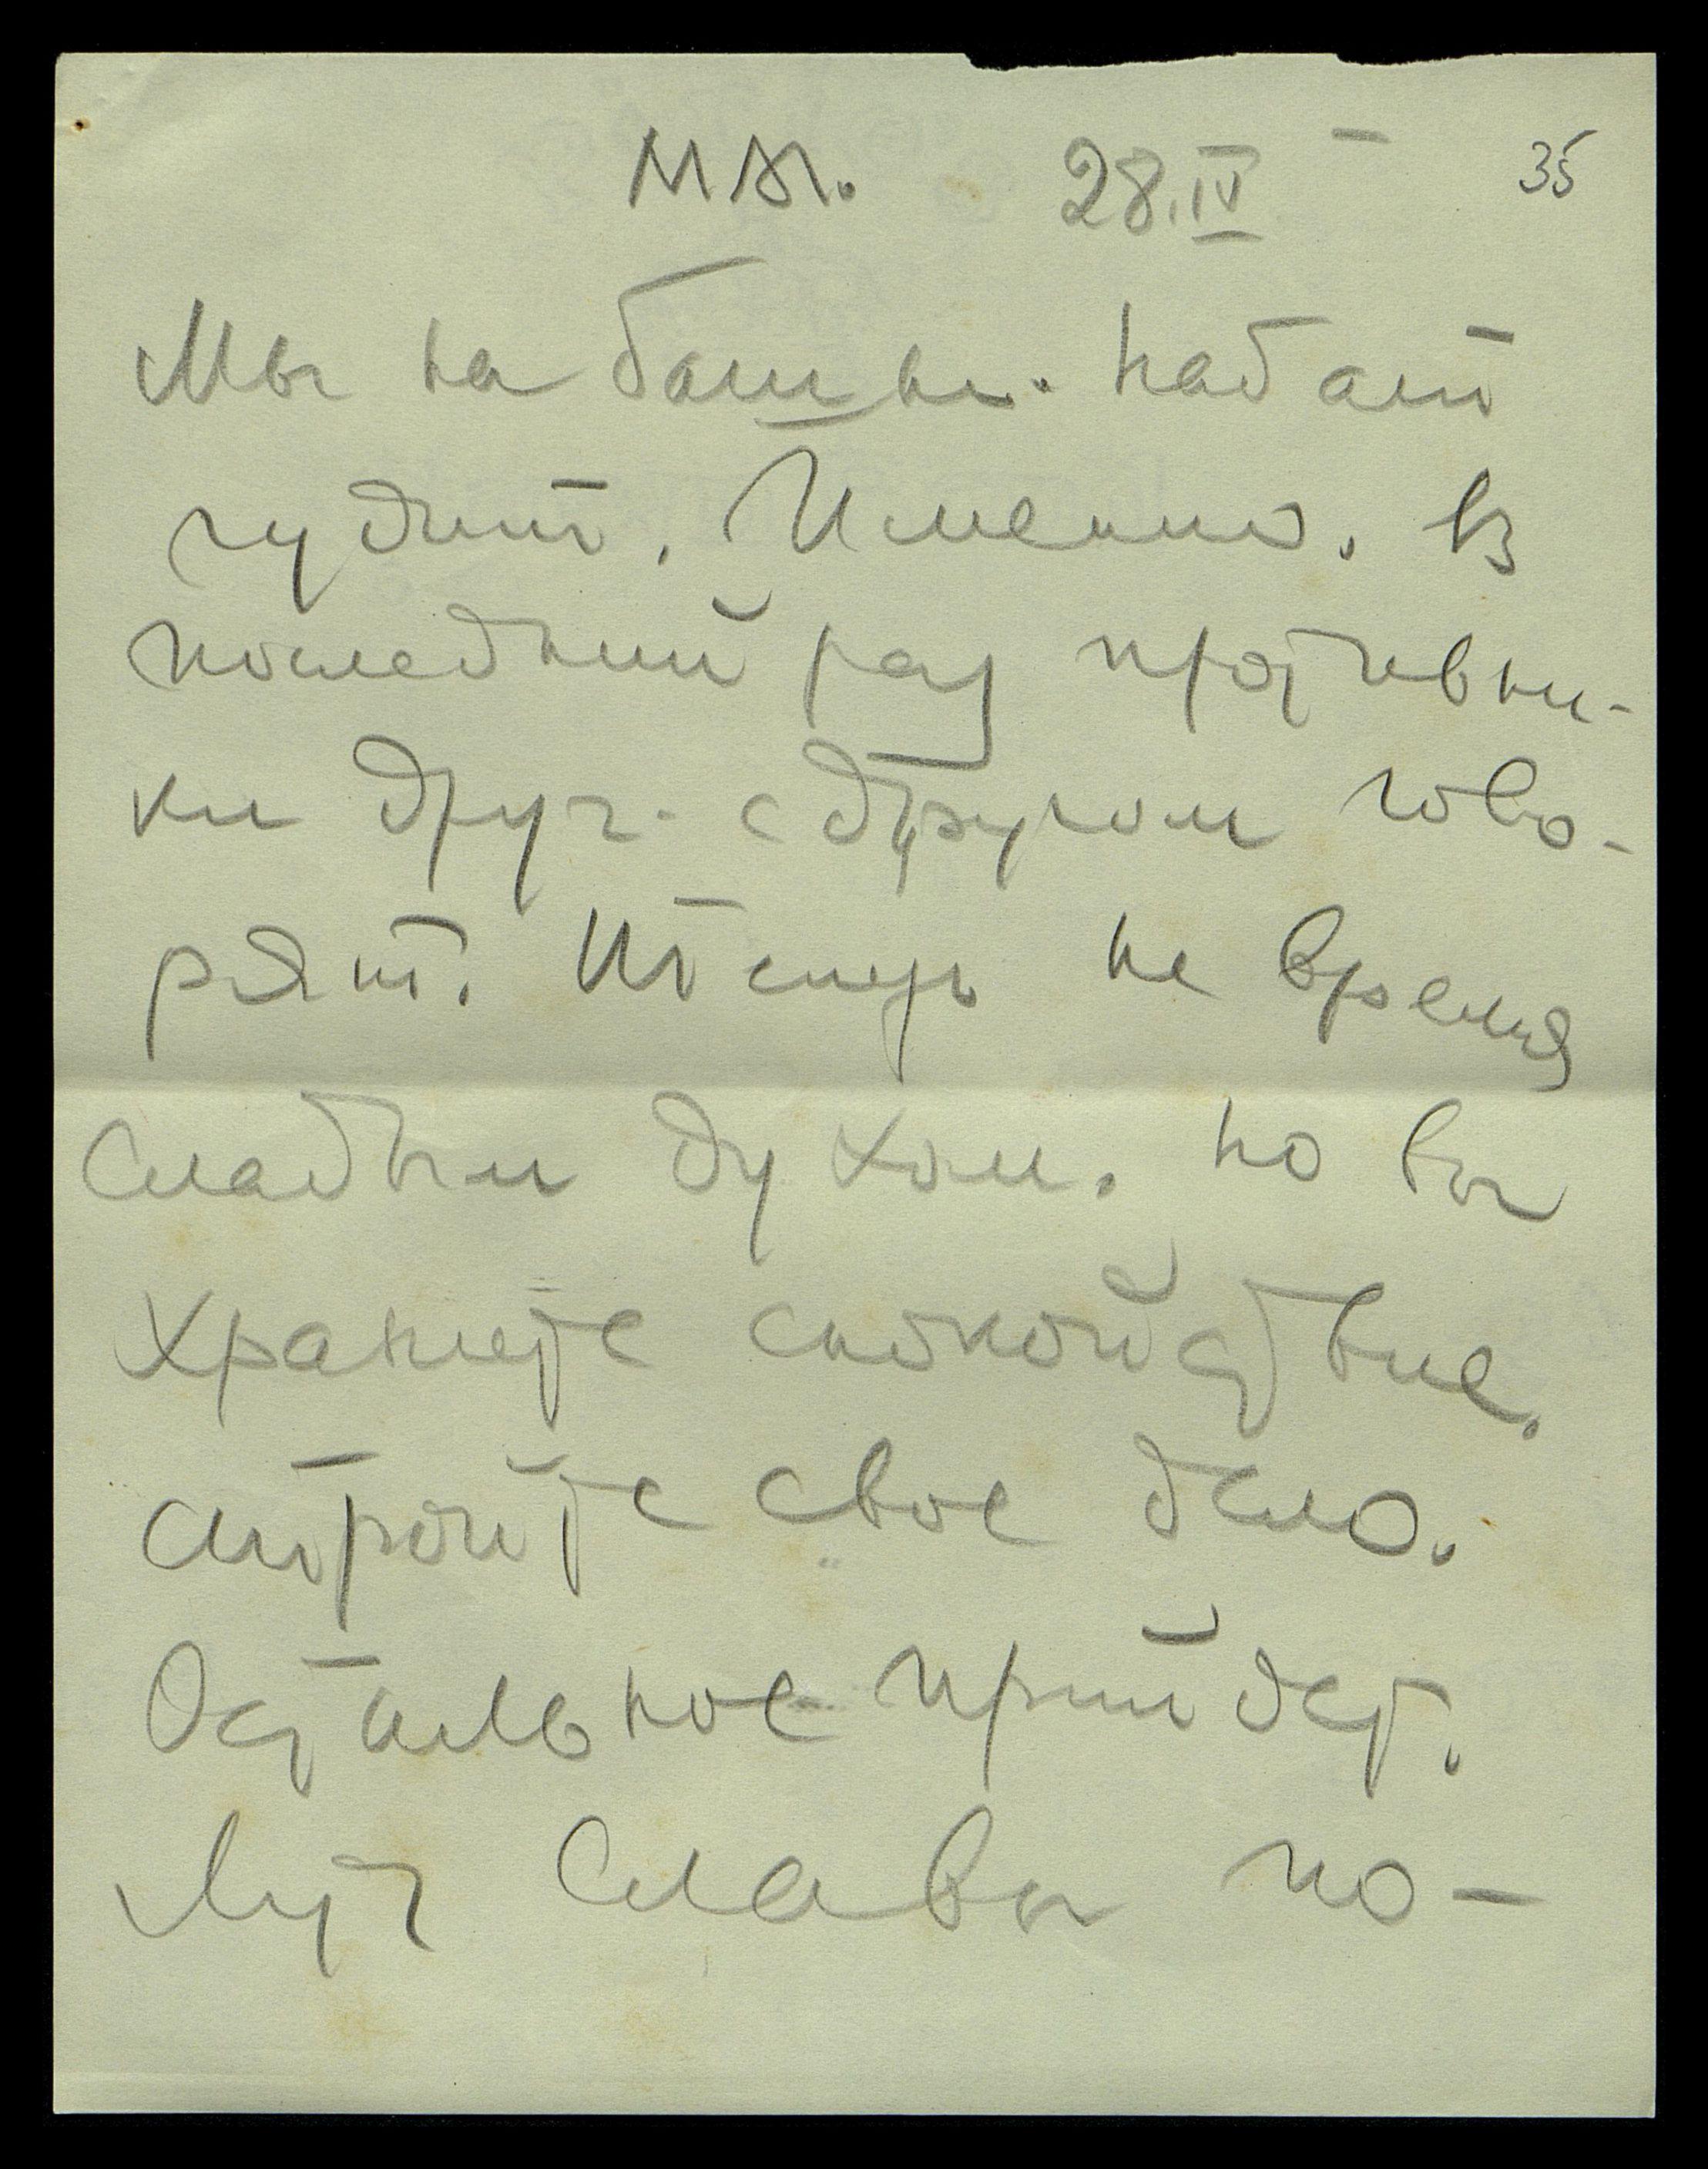 28.IV 35
Мы на башне. Набат
гудит. Именно. В
последний раз противни-
ки друг с другом гово-
рят. Теперь не время
слабым духом. Но вы
храните спокойствие.
Стройте свое дело.
Остальное прийдет.
Луч Славы по-